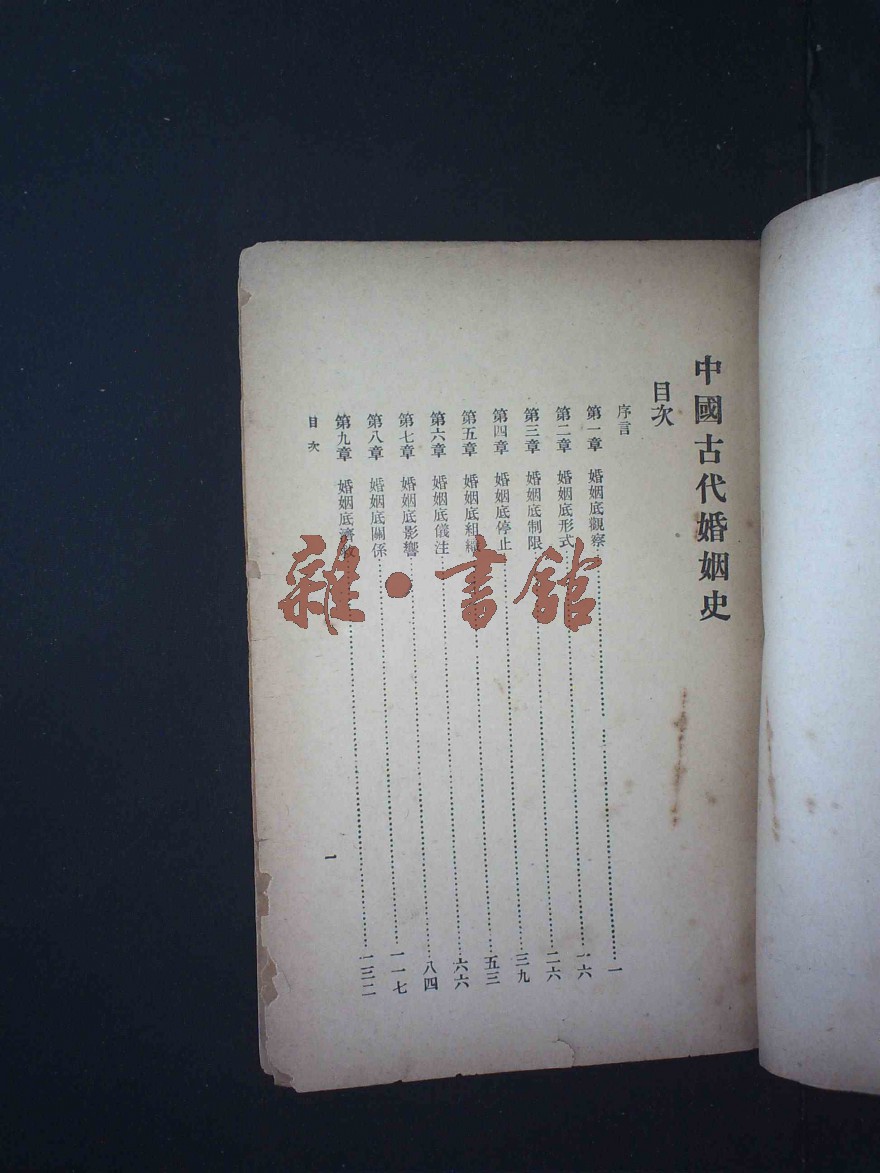 中國古代婚姻史
目次
序言
第一章 婚姻底觀察……一
第二章 婚姻底形式……一六
第三章 婚姻底制限……二六
第四章 婚姻底停止……三九
第五章 婚姻底組織……五三
第六章 婚姻底儀注……六六
第七章 婚姻底影響……八四
第八章 婚姻底關係……一一七
第九章 婚姻底濟救……一三二
目次
一
雜·書館